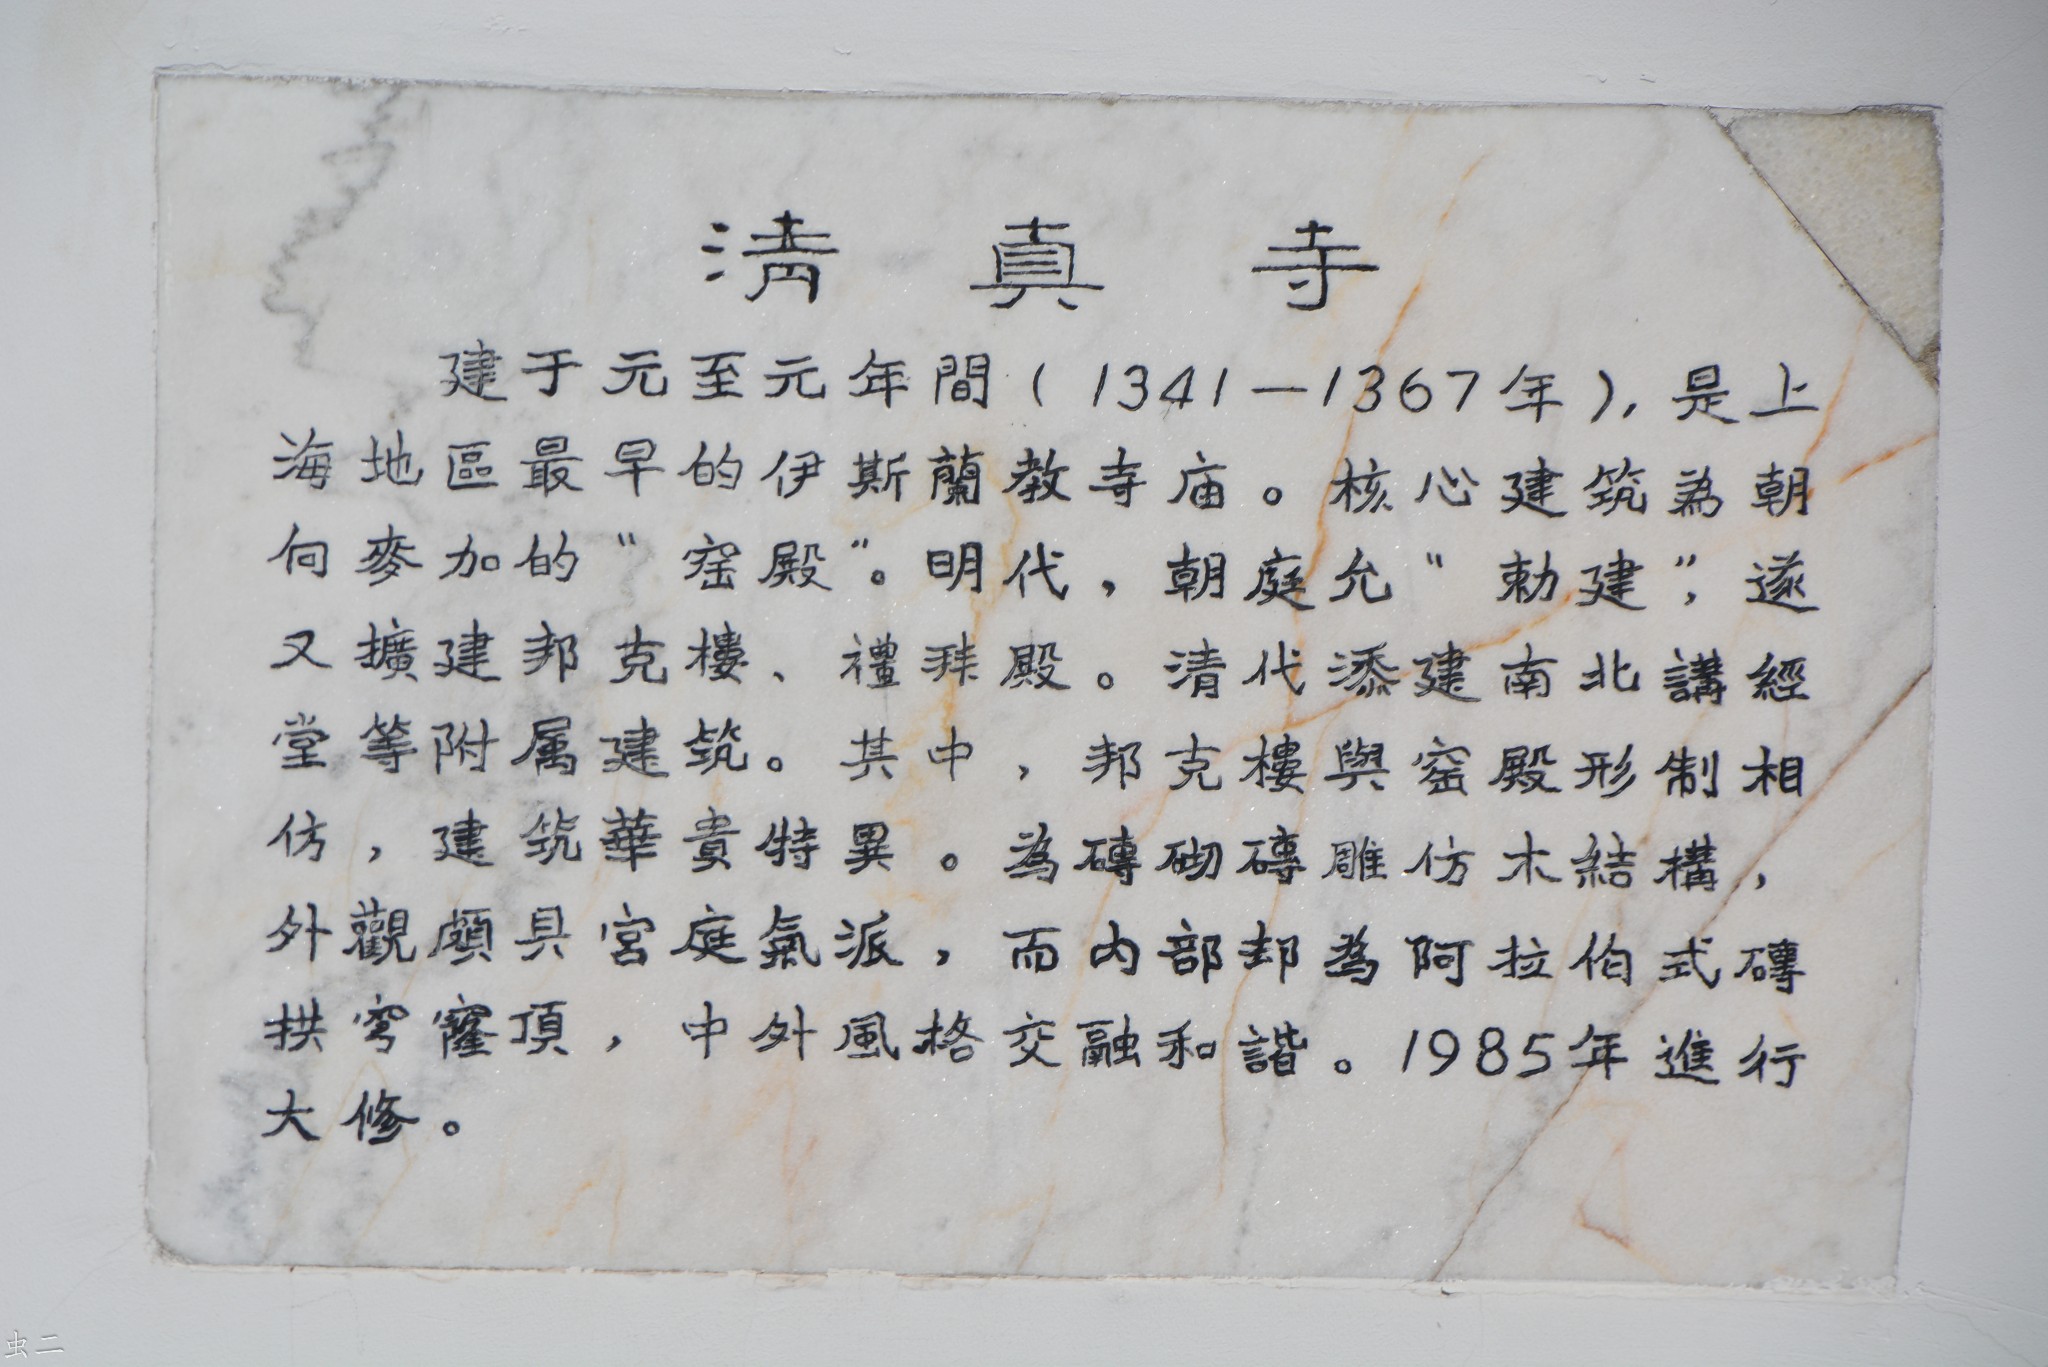 清真寺
建于元至元年間(1341—1367年),是上
海地區最早的伊斯蘭教寺庙。核心建筑為朝
向麥加的“窑殿”。明代,朝庭允“勅建”,遂
又擴建邦克樓、禮拜殿。清代添建南北講經
堂等附属建筑。其中,邦克樓與窑殿形制相
仿,建筑華貴特異。為磚砌磚雕仿木結構,
外觀頗具宮庭氣派,而内部却為阿拉伯式磚
拱穹窿頂,中外風格交融和諧。1985年進行
大修。
虫二